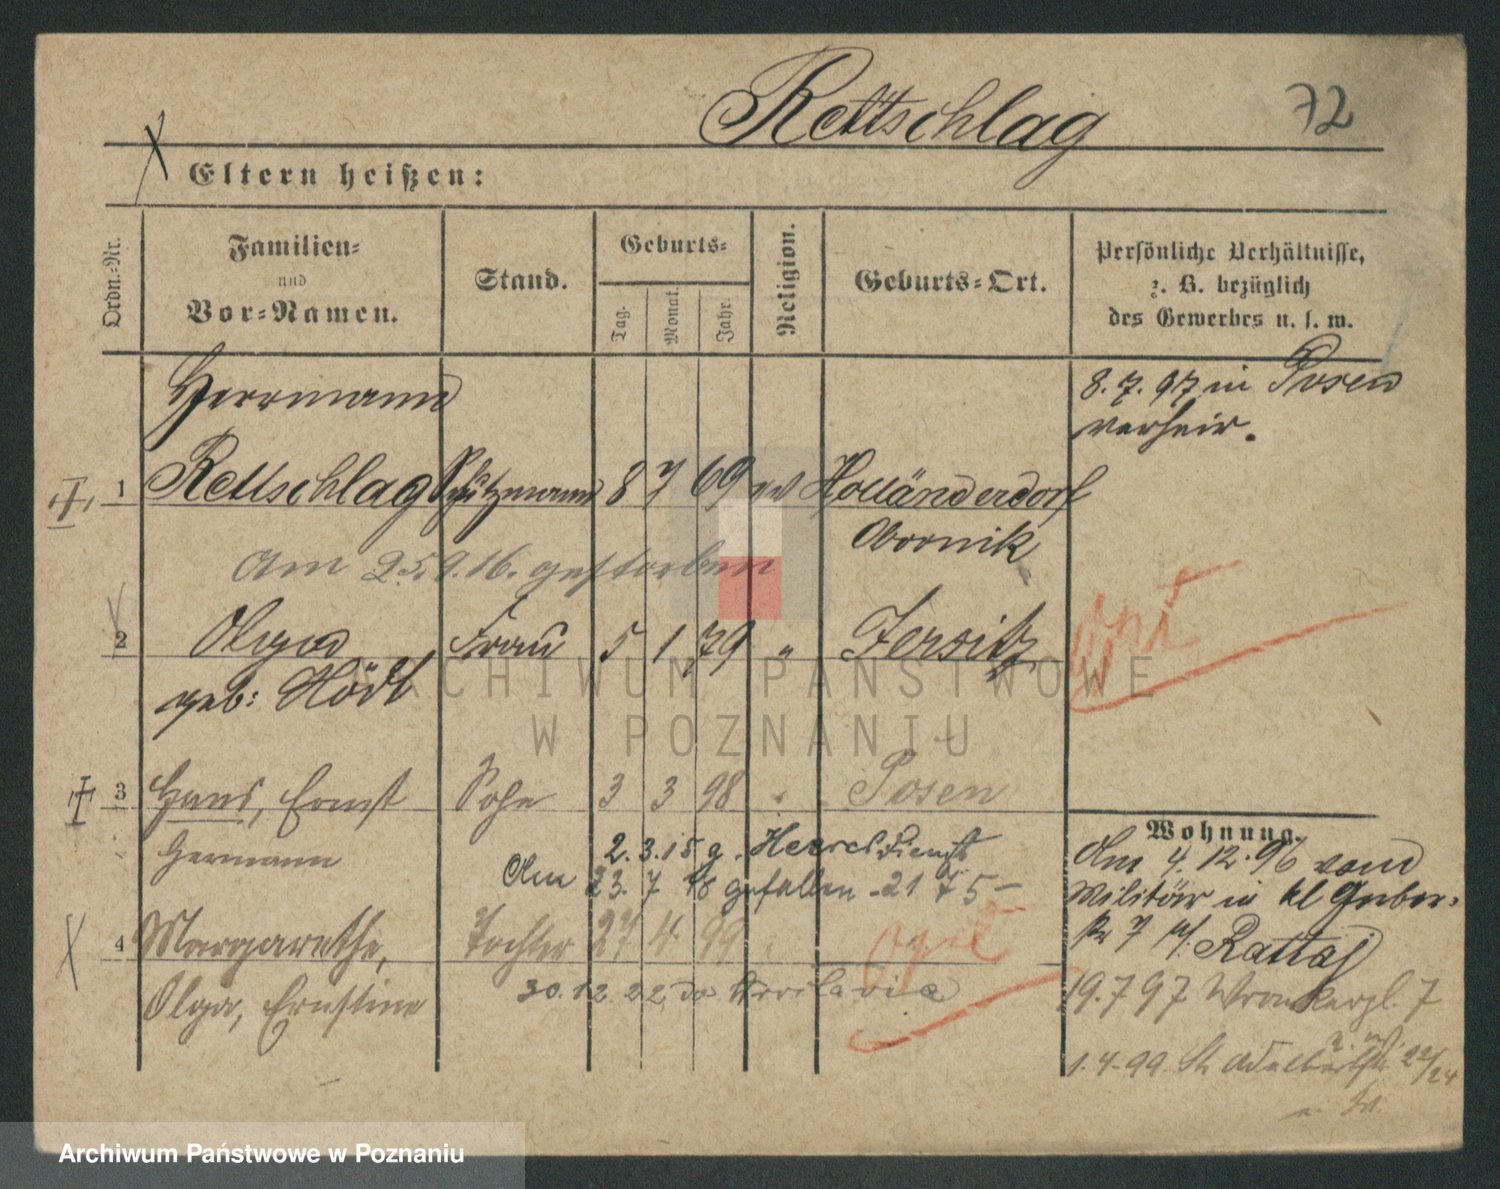 Rettschlag
72
Eltern heißen:
Ordn.-Nr.
Familien-
und
Vor-Namen.
Stand.
Geburts-
Tag.
Monat.
Jahr.
Religion.
Geburts-Ort.
Persönliche Verhältnisse,
z. B. bezüglich
des Gewerbes u. s. w.
Herrmann
8. 7. 97 in Posen
verheir.
1 Rettschlag Schutzmann 8 7 69 ev Holländerdorf
Obornik
Am 25.9.16. gestorben
2 Olga Frau 5 1 79 " Jersitz
geb: Hödt
ARCHIWUM PAŃSTWOWE
W POZNANIU
3 Hans, Ernst Sohn 3 3 98 " Posen
Hermann
2. 3. 15 g. Heeresdienst
Am 23. 7 18 gefallen
Wohnung.
Am 4. 12. 96 vom
Militär in kl Gerber-
7 Rattaj
4 Margarethe, Tochter 27 4 99
Olga, Ernstine
30.12.22
19. 7 97 Wronkerpl. 7
1. 4. 99 St Adalbertstr 22/24
Archiwum Państwowe w Poznaniu